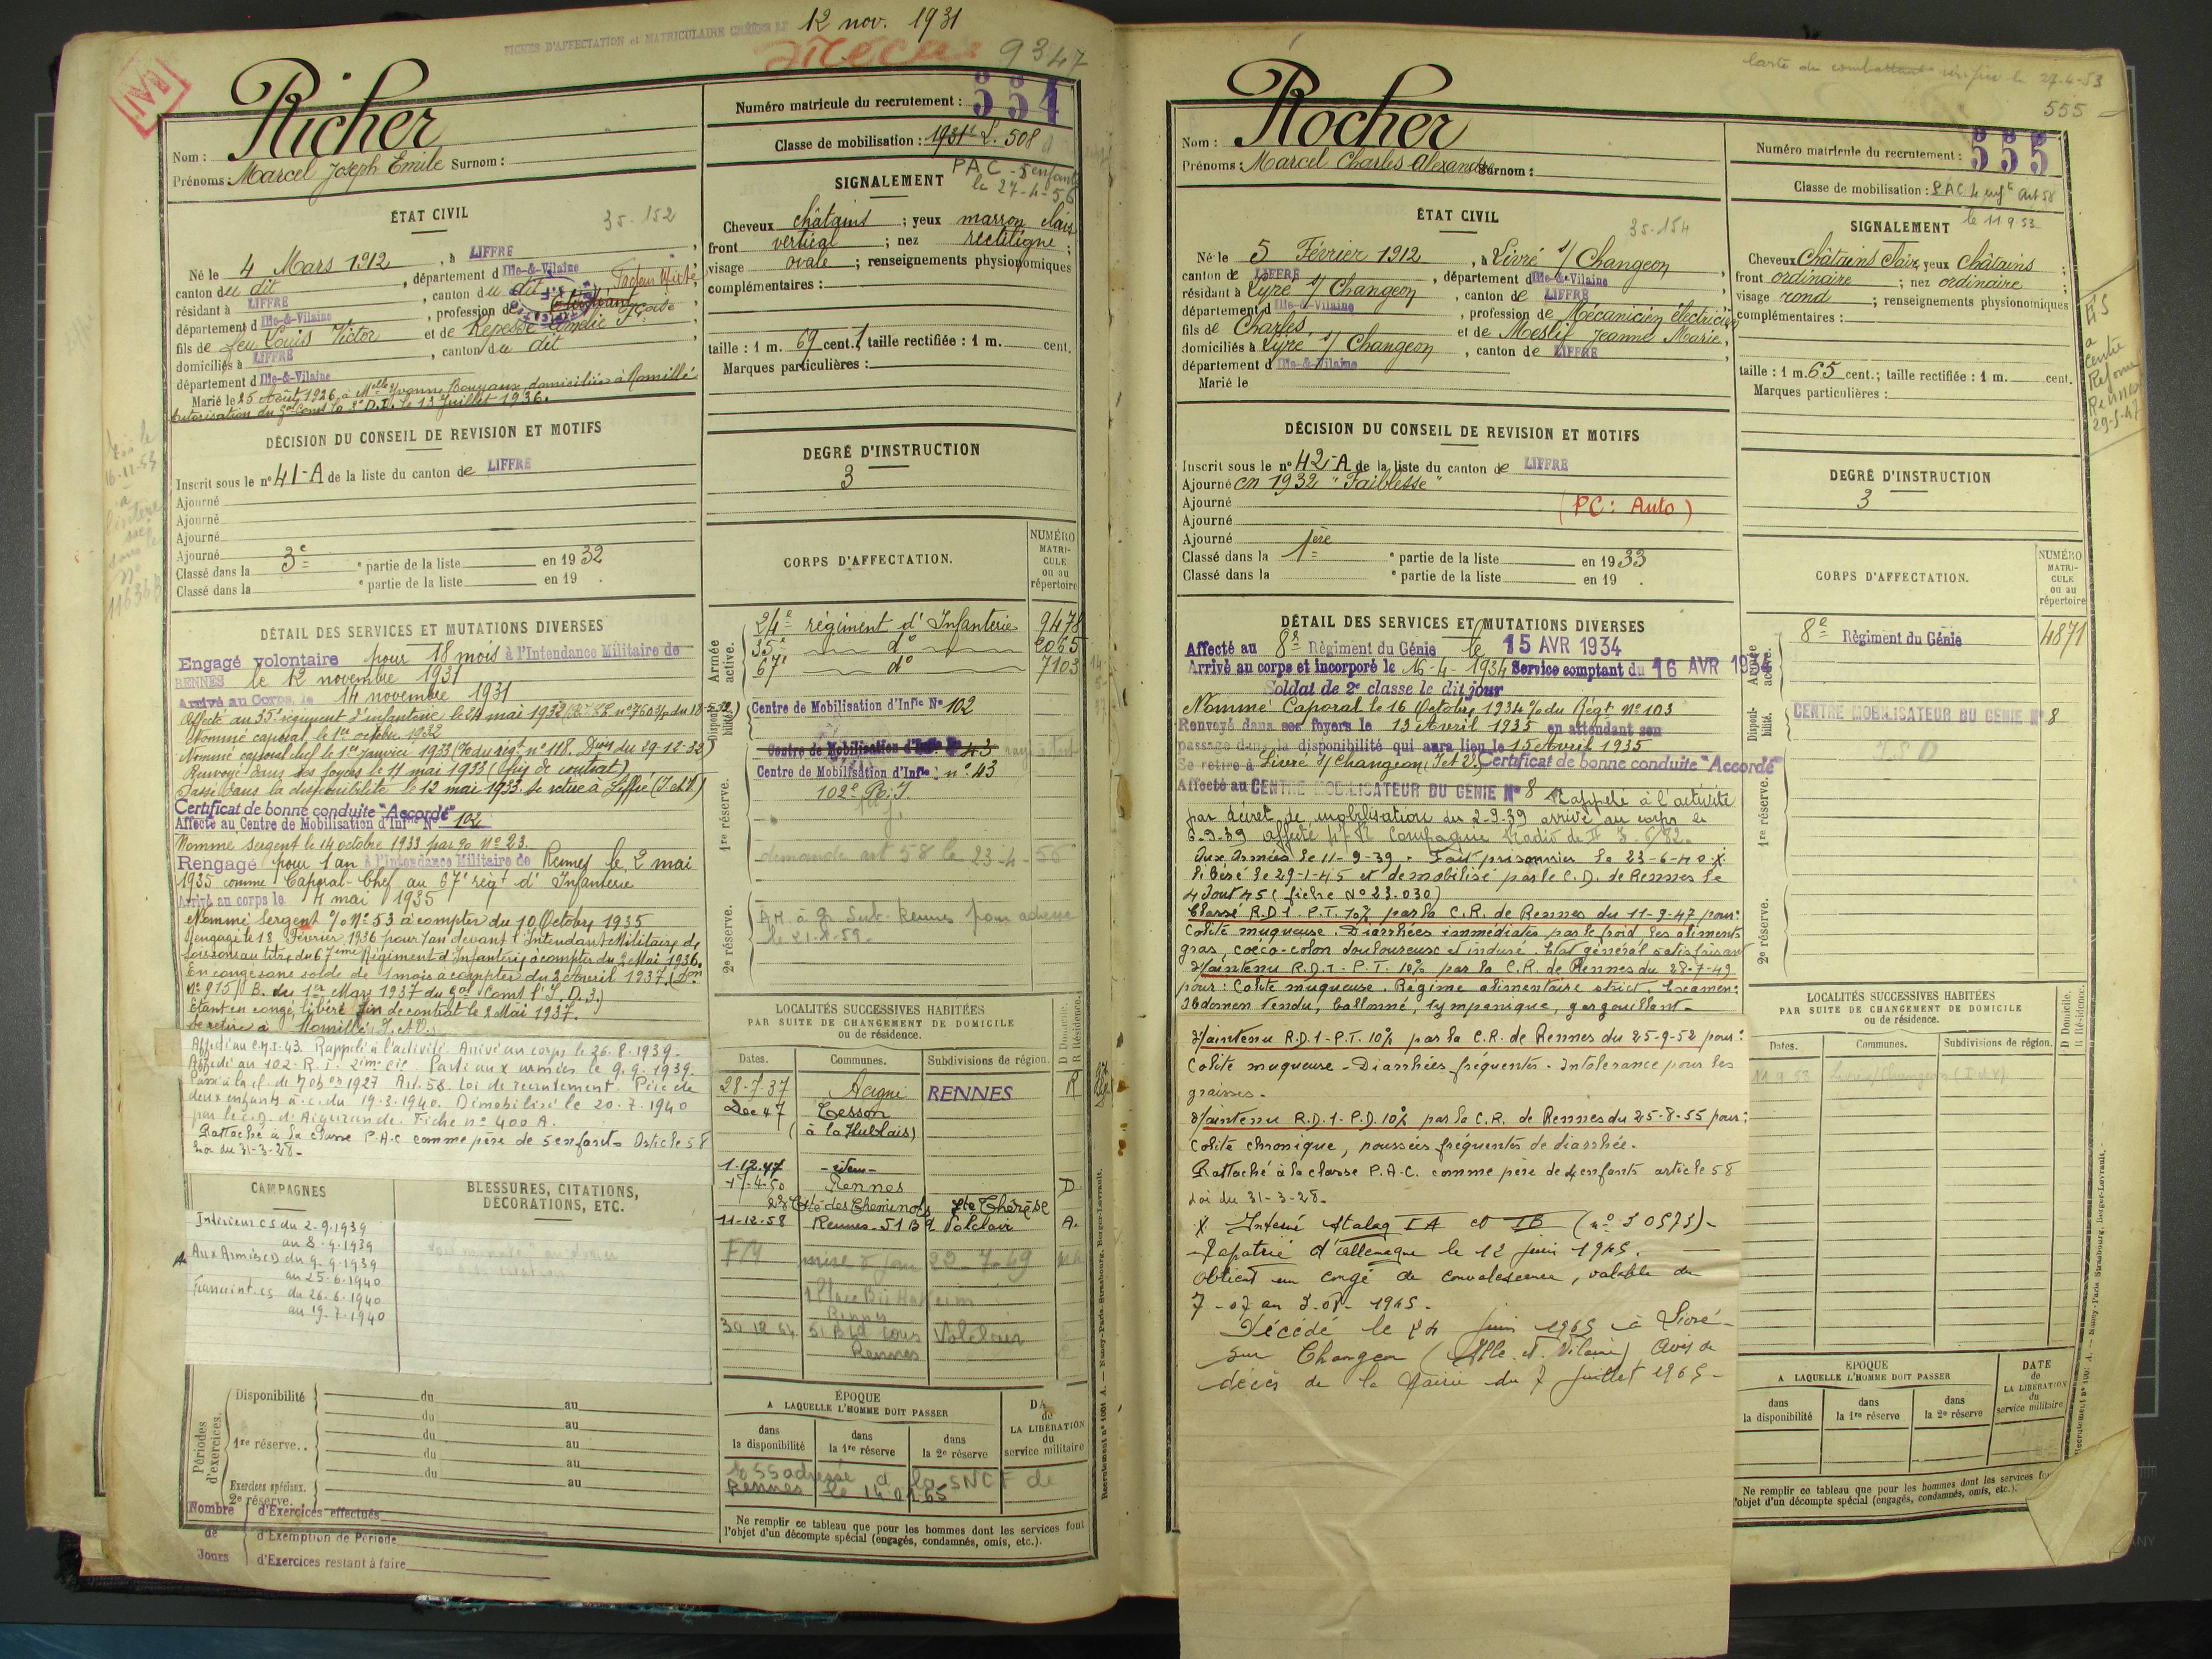 FICHES D'AFFECTATION et MATRICULAIRE CRÉÉES LE 12 nov. 1931
9347
Richer
Nom :
Prénoms : Marcel Joseph Emile Surnom :
Numéro matricule du recrutement : 554
Classe de mobilisation : 1931 2. 508
PAC - 5 enfants
le 27-4-56
ÉTAT CIVIL
35-152
Né le 4 Mars 1912, à LIFFRÉ,
canton du dit, département d Ille-&-Vilaine
résidant à LIFFRÉ, canton du dit
département d Ille-&-Vilaine, profession de
fils de feu Louis Victor et de Repessé Amélie Fçoise
domiciliés à LIFFRÉ, canton du dit
département d Ille-&-Vilaine
Marié le 25 Août 1926 à Melle Yvonne domiciliée à Romillé
Autorisation du Gal Comt la 3e D.I. le 13 Juillet 1936.
SIGNALEMENT
Cheveux châtains ; yeux marron clair
front vertical ; nez rectiligne ;
visage ovale ; renseignements physionomiques
complémentaires :
taille : 1 m. 69 cent. ; taille rectifiée : 1 m. cent.
Marques particulières :
DÉCISION DU CONSEIL DE REVISION ET MOTIFS
Inscrit sous le n° 41-A de la liste du canton de LIFFRÉ
Ajourné
Ajourné
Ajourné
Ajourné
Classé dans la 3e ° partie de la liste en 1932
Classé dans la ° partie de la liste en 19 .
DEGRÉ D'INSTRUCTION
3
CORPS D'AFFECTATION.
NUMÉRO MATRICULE ou au répertoire
Armée active.
24e régiment d'Infanterie 9478
35e d° 2065
67e d° 7103
Disponibilité.
Centre de Mobilisation d'Infie N° 102
1re réserve.
Centre de Mobilisation d'Infie N° 43
Centre de Mobilisation d'Infie n° 43
102e R.I.
demande art 58 le 23-4-56
2e réserve.
A.M. à Gr Sub. Rennes pour adresse
DÉTAIL DES SERVICES ET MUTATIONS DIVERSES
Engagé volontaire pour 18 mois à l'Intendance Militaire de
RENNES le 12 novembre 1931
Arrivé au Corps le 14 novembre 1931
Affecté au 35e régiment d'infanterie le 24 mai 1932
Nommé caporal le 1er octobre 1932
Nommé caporal chef le 1er janvier 1933 (% du régt n° 118. du 29-12-32)
Renvoyé dans ses foyers le 11 mai 1933 (fin de contrat)
Passé dans la disponibilité le 12 mai 1933. Se retire à Liffré (I. et V.)
Certificat de bonne conduite "Accordé"
Affecté au Centre de Mobilisation d'Infie N° 102
Nommé Sergent le 14 octobre 1933 par % N° 23.
Rengagé pour 1 an à l'Intendance Militaire de Rennes le 2 mai
1935 comme Caporal-Chef au 67e régt d'Infanterie
Arrivé au corps le 4 mai 1935
Nommé Sergent % N° 53 à compter du 10 Octobre 1935
Rengagé le 18 Février 1936 pour 1 an devant l'Intendant Militaire de
Soissons au titre du 67ème Régiment d'Infanterie à compter du 2 Mai 1936.
En congé sans solde de 1 mois à compter du 2 Avril 1937 (Don
N° 915/1 B. du 1er Mars 1937 du Gal Comt l'I.D.3.)
Etant en congé, libéré fin de contrat le 2 Mai 1937.
Se retire à Romillé (I. et V.)
Affecté au C.M.I. 43. Rappelé à l'activité. Arrivé au corps le 26.8.1939.
Affecté au 102e R.I. 2ème Cie. Parti aux armées le 9.9.1939.
Passé à la cl. de 1927 Art. 58. Loi de recrutement. Père de
deux enfants à c. du 19.3.1940. Démobilisé le 20.7.1940
par le C.D. d'Aigurande. Fiche n° 400 A.
Rattaché à la classe P.A.C comme père de 5 enfants Article 58
Loi du 31-3-28-
LOCALITÉS SUCCESSIVES HABITÉES
PAR SUITE DE CHANGEMENT DE DOMICILE
ou de résidence.
Dates. Communes. Subdivisions de région. D Domicile. R Résidence.
28-7-37 Acigné RENNES R
Dec 47 Cesson
(à la Hublais)
1.12.47 - idem -
17-4-50 Rennes D
22 Cité des Cheminots Ste Thérèse
11-12-58 Rennes - 51 Bd Volclair A.
FM mise à jour 22-7-69
1 Place Bir Hakeim
Rennes
30 12 64 51 Bd Volclair
Rennes
CAMPAGNES
BLESSURES, CITATIONS, DÉCORATIONS, ETC.
Intérieur CS du 2.9.1939
au 8.9.1939
Aux Armées CD du 9.9.1939
au 25.6.1940
du 26.6.1940
au 19.7.1940
Périodes d'exercices.
Disponibilité du au
du au
1re réserve.. du au
du au
Exercices spéciaux. du au
2e réserve.
Nombre de Jours
d'Exercices effectués
d'Exemption de Période
d'Exercices restant à faire
ÉPOQUE
A LAQUELLE L'HOMME DOIT PASSER
dans la disponibilité
dans la 1re réserve
dans la 2e réserve
LA LIBÉRATION du service militaire
adressé à la SNCF de
Rennes le
Ne remplir ce tableau que pour les hommes dont les services font
l'objet d'un décompte spécial (engagés, condamnés, omis, etc.).
Recrutement n° 1001 A. — Nancy-Paris-Strasbourg, Berger-Levrault.
Carte du combattant le 27-4-53
555
Rocher
Nom :
Prénoms : Marcel Charles Alexandre Surnom :
Numéro matricule du recrutement : 555
Classe de mobilisation : P.A.C. 4 enfts Art 58
le 11 9 53
ÉTAT CIVIL
35-154
Né le 5 Février 1912, à Livré s/ Changeon,
canton de LIFFRÉ, département d Ille-&-Vilaine
résidant à Livré s/ Changeon, canton de LIFFRÉ
département d Ille-&-Vilaine, profession de Mécanicien électricien
fils de Charles et de Meslif Jeanne Marie,
domiciliés à Livré s/ Changeon, canton de LIFFRÉ
département d Ille-&-Vilaine
Marié le
SIGNALEMENT
Cheveux Châtains clair yeux châtains ;
front ordinaire ; nez ordinaire ;
visage rond ; renseignements physionomiques
complémentaires :
taille : 1 m. 65 cent. ; taille rectifiée : 1 m. cent.
Marques particulières :
à
Centre
Réforme
Rennes
29-5-47
DÉCISION DU CONSEIL DE REVISION ET MOTIFS
Inscrit sous le n° 42-A de la liste du canton de LIFFRÉ
Ajourné en 1932 "Faiblesse"
Ajourné
(PC : Auto)
Ajourné
Ajourné
Classé dans la 1ère ° partie de la liste en 1933
Classé dans la ° partie de la liste en 19 .
DEGRÉ D'INSTRUCTION
3
CORPS D'AFFECTATION.
NUMÉRO MATRICULE ou au répertoire
Armée active.
8e Régiment du Génie 4871
Disponibilité.
CENTRE MOBILISATEUR DU GENIE N° 8
1re réserve.
2e réserve.
DÉTAIL DES SERVICES ET MUTATIONS DIVERSES
Affecté au 8e Régiment du Génie le 15 AVR 1934
Arrivé au corps et incorporé le 16-4-1934 Service comptant du 16 AVR 1934
Soldat de 2e classe le dit jour
Nommé Caporal le 16 Octobre 1934 % du Régt N° 103
Renvoyé dans ses foyers le 13 Avril 1935 en attendant son
passage dans la disponibilité qui aura lieu le 15 Avril 1935
Se retire à Livré s/ Changeon (I et V.) Certificat de bonne conduite "Accordé"
Affecté au CENTRE MOBILISATEUR DU GENIE N° 8 Rappelé à l'activité
par décret de mobilisation du 2-9-39 arrivé au corps le
3-9-39 affecté Compagnie Radio
Aux Armées le 11-9-39. Fait prisonnier le 23-6-40. X.
libéré le 29-1-45 et démobilisé par le C.D. de Rennes le
4 Aout 45 (fiche N° 23.030)
Classé R.D.1. P.T. 10% par la C.R. de Rennes du 11-9-47 pour:
Colite muqueuse. Diarrhées immédiates par le froid, les aliments
gras, coeco-colon douloureux et induré. Etat général satisfaisant
Maintenu R.D.1 - P.T. 10% par la C.R. de Rennes du 28-7-49
pour: Colite muqueuse. Régime alimentaire strict. Examen:
abdomen tendu, ballonné, tympanique, gargouillant -
Maintenu R.D.1 - P.T. 10% par la C.R. de Rennes du 25-9-52 pour:
Colite muqueuse - Diarrhées fréquentes. Intolérance pour les
graisses -
Maintenu R.D.1 - P.D. 10% par la C.R. de Rennes du 25-8-55 pour:
Colite chronique, poussées fréquentes de diarrhée.
Rattaché à la classe P.A.C. comme père de 4 enfants article 58
Loi du 31-3-28-
X Interné Stalag IA et IB (n° 30573) -
Rapatrié d'Allemagne le 12 juin 1945.
Obtient un congé de convalescence, valable du
7-07 au 3-08-1945.
Décédé le 24 juin 1965 à Livré-
sur Changeon (Ille et Vilaine) Avis de
décès de la Mairie du 7 juillet 1965 -
LOCALITÉS SUCCESSIVES HABITÉES
PAR SUITE DE CHANGEMENT DE DOMICILE
ou de résidence.
Dates. Communes. Subdivisions de région. D Domicile. R Résidence.
11 9 53 Livré s/ Changeon (I et V)
ÉPOQUE
A LAQUELLE L'HOMME DOIT PASSER
dans la disponibilité
dans la 1re réserve
dans la 2e réserve
DATE de LA LIBÉRATION du service militaire
Ne remplir ce tableau que pour les hommes dont les services
l'objet d'un décompte spécial (engagés, condamnés, omis, etc.).
Recrutement n° 1001 A. — Nancy-Paris-Strasbourg, Berger-Levrault.